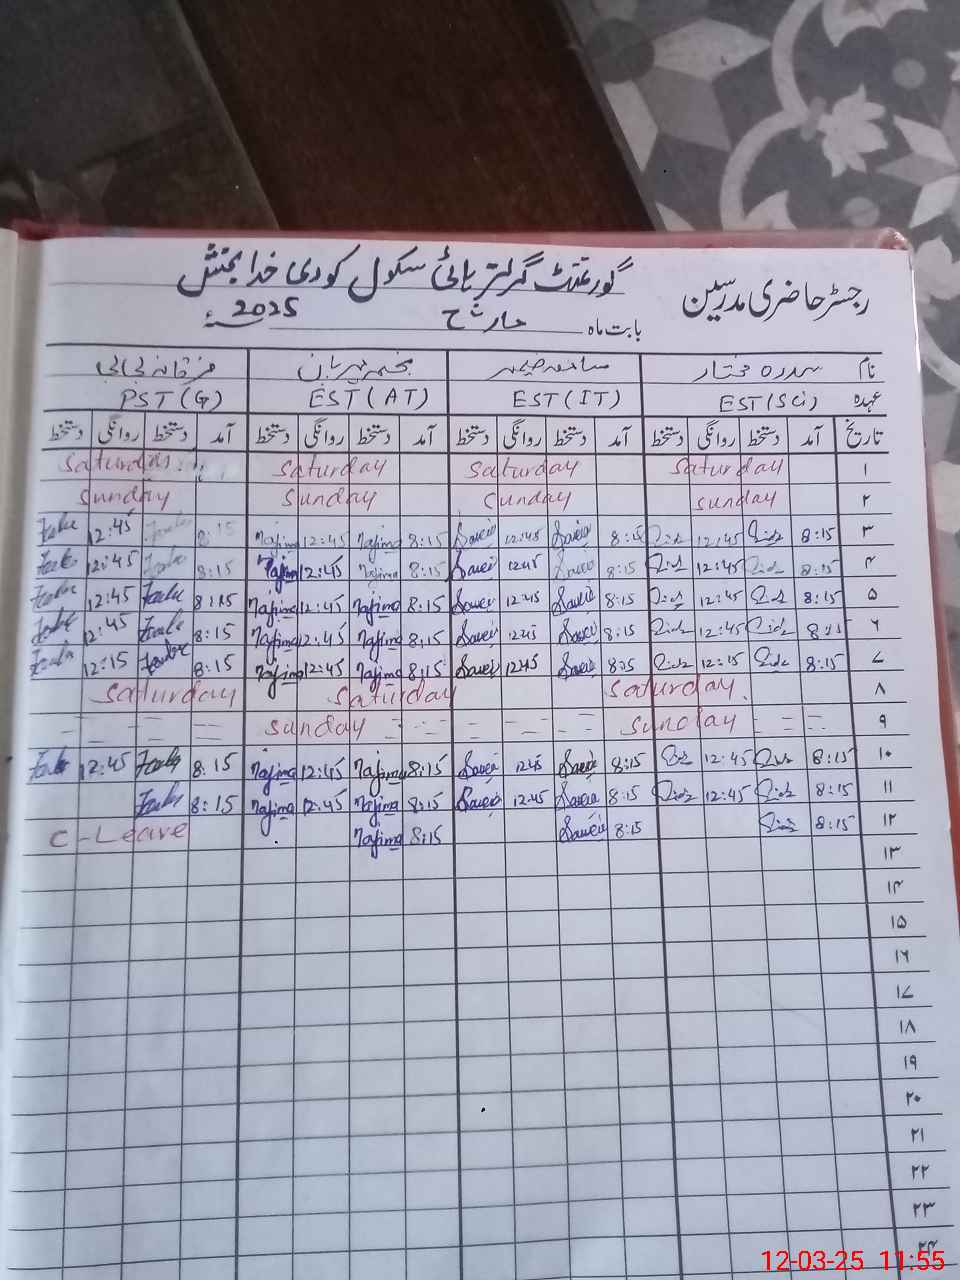 گورنمنٹ گرلز ہائی سکول کودی خدا بخش
رجسٹر حاضری مدرسین
بابت ماہ مارچ 2025ء
نام سدرہ مختار صائمہ نجمہ مہربان فرقانہ بی بی
عہدہ EST(Sci) EST(IT) EST(AT) PST(G)
تاریخ آمد دستخط روانگی دستخط آمد دستخط روانگی دستخط آمد دستخط روانگی دستخط آمد دستخط روانگی دستخط
Saturday Saturday Saturday Saturday ۱
Sunday Sunday Sunday Sunday ۲
12:45 8:15 Najima 12:45 Najima 8:15 12:45 8:15 12:45 8:15 ۳
12:45 8:15 Najima 12:45 Najima 8:15 12:45 8:15 12:45 8:15 ۴
12:45 8:15 Najima 12:45 Najima 8:15 12:45 8:15 12:45 8:15 ۵
12:45 8:15 Najima 12:45 Najima 8:15 12:45 8:15 12:45 8:15 ۶
12:15 8:15 Najima 12:45 Najima 8:15 12:45 8:15 12:15 8:15 ۷
Saturday Saturday Saturday ۸
Sunday Sunday ۹
12:45 8:15 Najima 12:45 Najima 8:15 12:45 8:15 12:45 8:15 ۱۰
8:15 Najima 12:45 Najima 8:15 12:45 8:15 12:45 8:15 ۱۱
C-Leave Najima 8:15 8:15 8:15 ۱۲
۱۳
۱۴
۱۵
۱۶
۱۷
۱۸
۱۹
۲۰
۲۱
۲۲
۲۳
۲۴
12-03-25 11:55